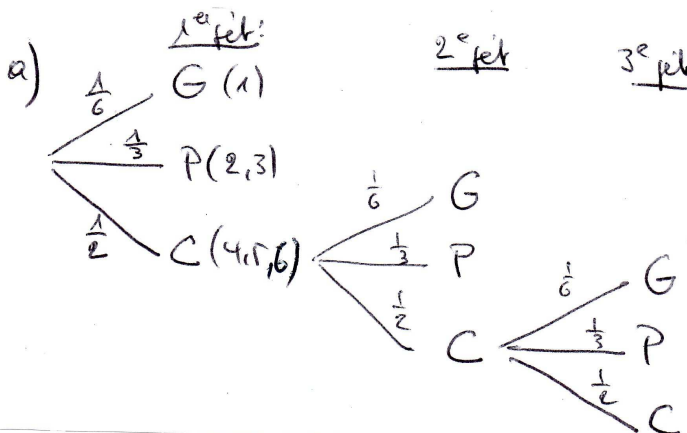 a)
1er jet:
2e jet
3e jet
1/6 G (1)
1/3 P(2,3)
1/2 C (4,5,6)
1/6 G
1/3 P
1/2 C
1/6 G
1/3 P
1/2 C